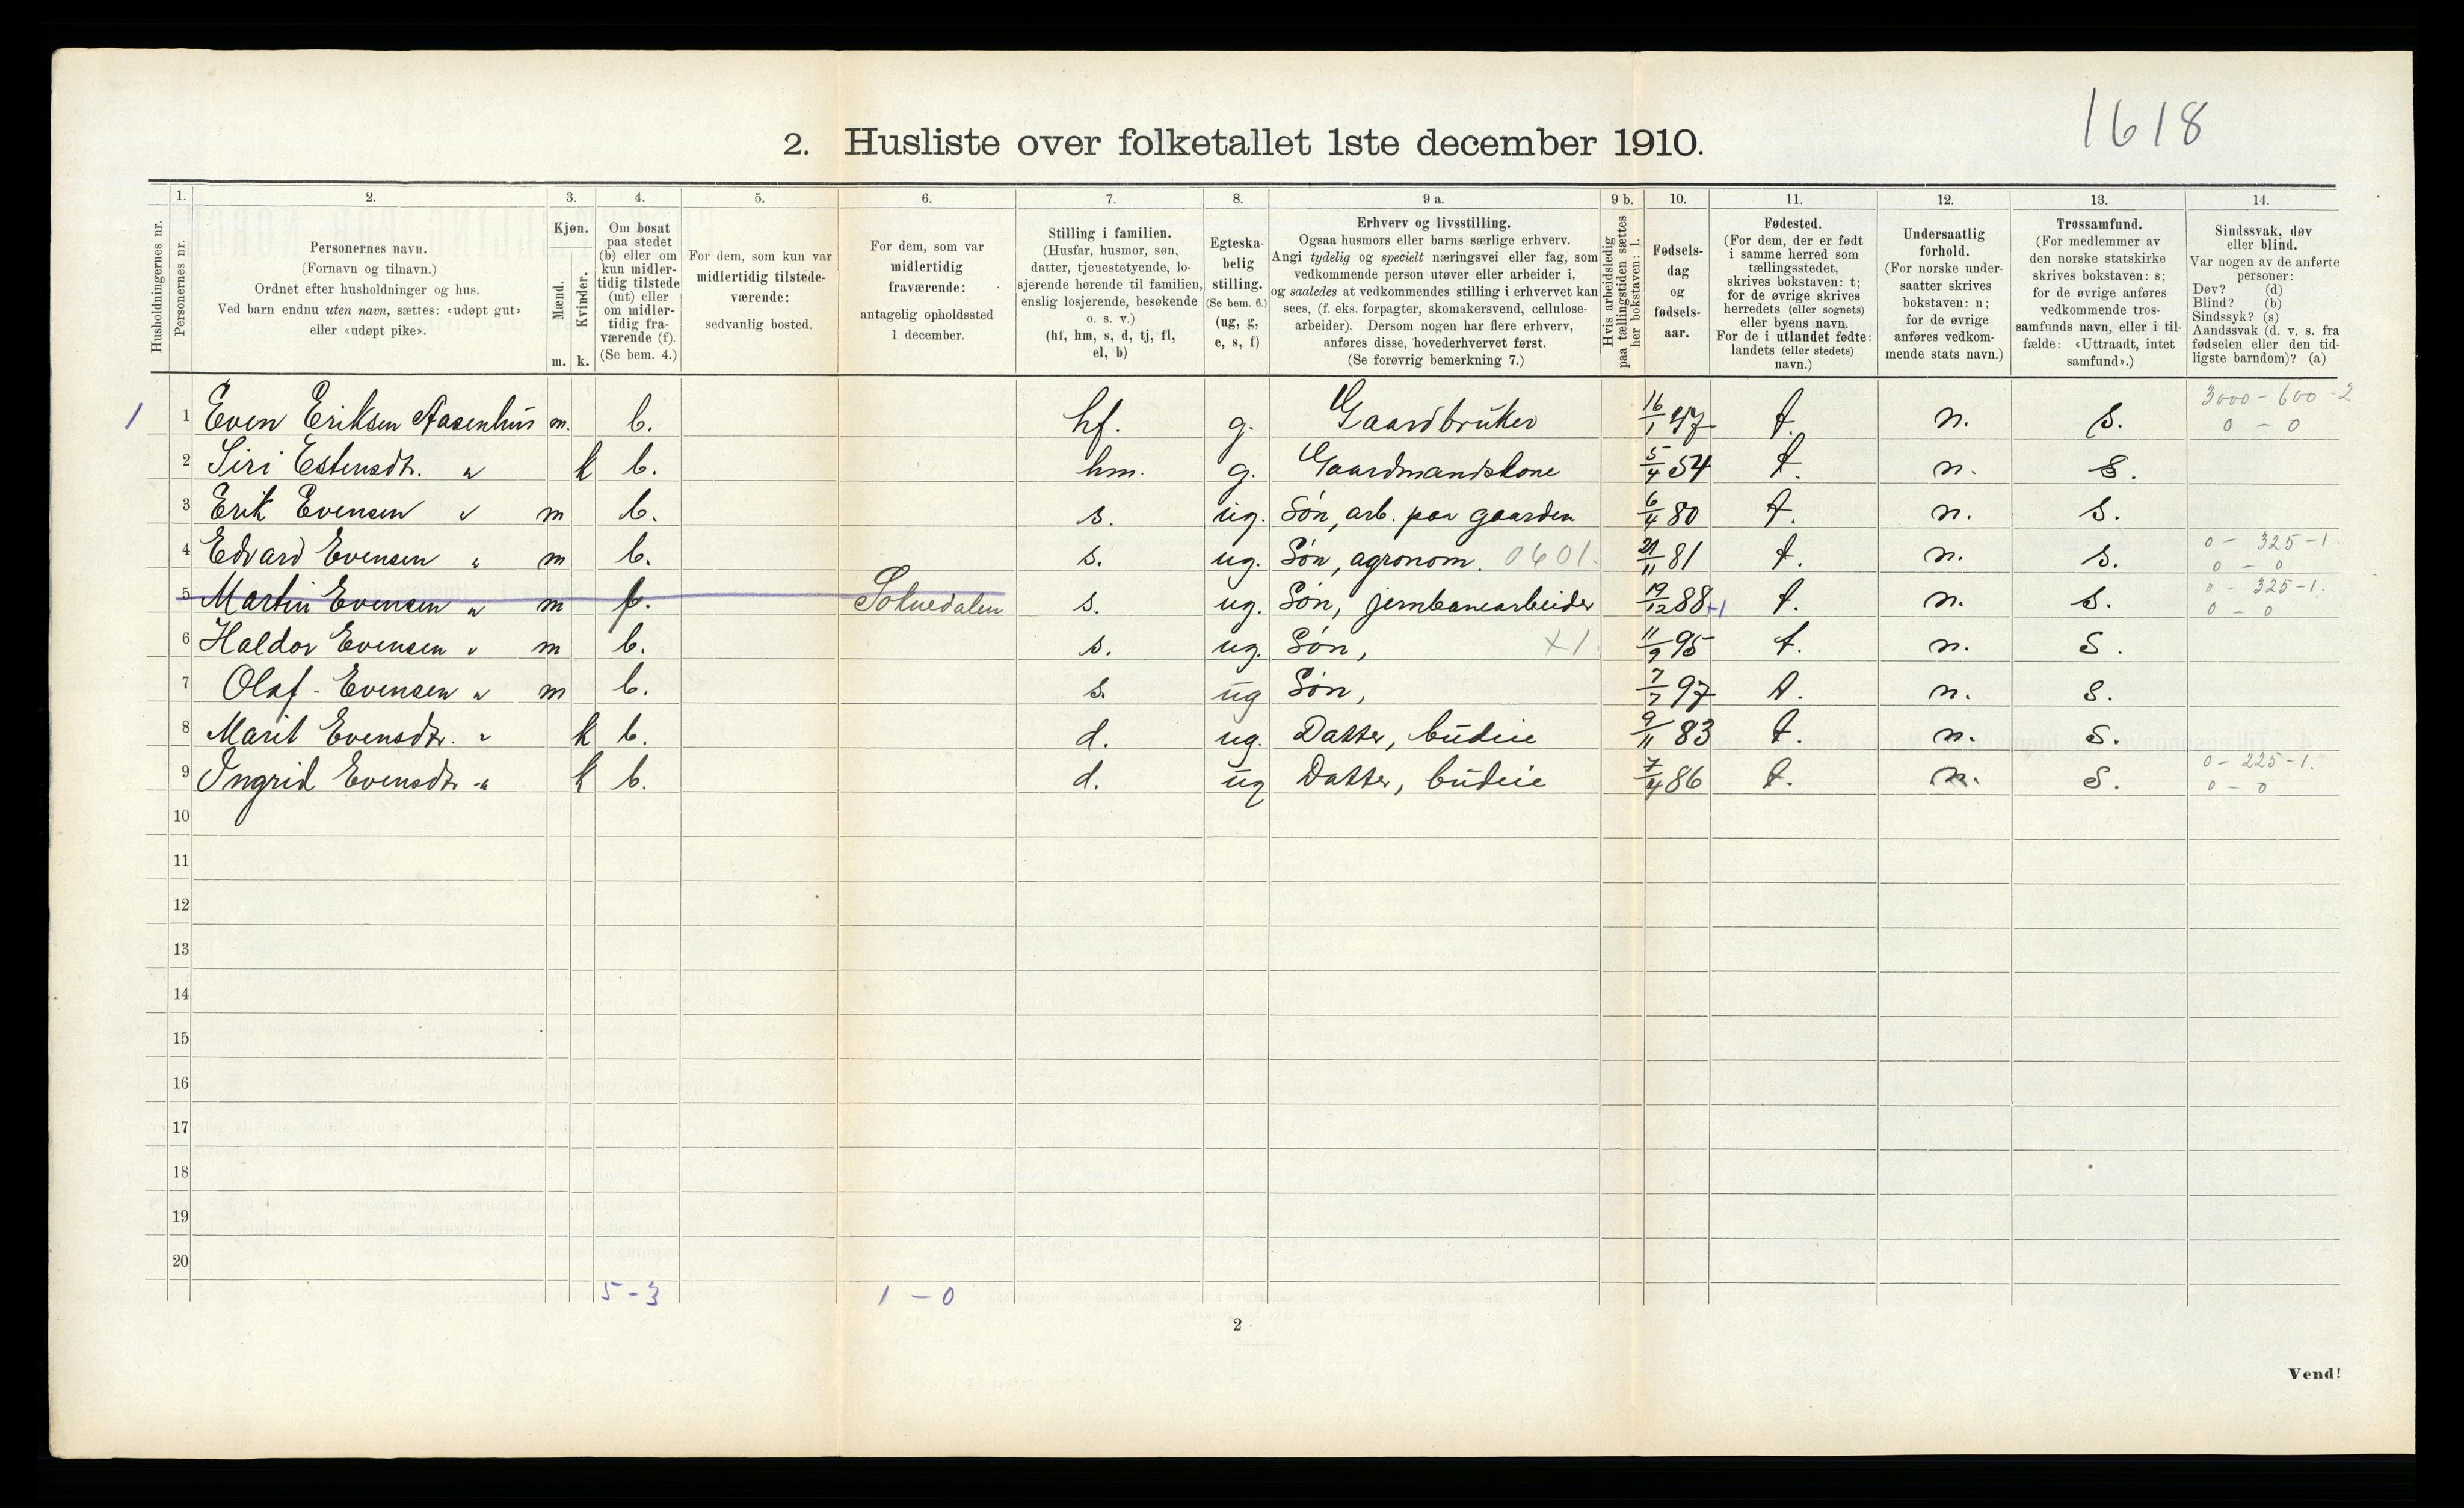 1618
2. Husliste over folketallet 1ste december 1910.
Husholdningernes nr.
1.
Personernes nr.
2.
Personernes navn.
(Fornavn og tilnavn.)
Ordnet efter husholdninger og hus.
Ved barn endnu uten navn, sættes: «udøpt gut»
eller «udøpt pike».
3.
Kjøn.
Mænd.
Kvinder.
m. k.
4.
Om bosat
paa stedet
(b) eller om
kun midler-
tidig tilstede
(mt) eller
om midler-
tidig fra-
værende (f).
(Se bem. 4.)
5.
For dem, som kun var
midlertidig tilstede-
værende:
sedvanlig bosted.
6.
For dem, som var
midlertidig
fraværende:
antagelig opholdssted
1 december.
7.
Stilling i familien.
(Husfar, husmor, søn,
datter, tjenestetyende, lo-
sjerende hørende til familien,
enslig losjerende, besøkende
o. s. v.)
(hf, hm, s, d, tj, fl,
el, b)
8.
Egteska-
belig
stilling.
(Se bem. 6.)
(ug, g,
e, s, f)
9 a.
Erhverv og livsstilling.
Ogsaa husmors eller barns særlige erhverv.
Angi tydelig og specielt næringsvei eller fag, som
vedkommende person utøver eller arbeider i,
og saaledes at vedkommendes stilling i erhvervet kan
sees, (f. eks. forpagter, skomakersvend, cellulose-
arbeider). Dersom nogen har flere erhverv,
anføres disse, hovederhvervet først.
(Se forøvrig bemerkning 7.)
9 b.
Hvis arbeidsledig
paa tællingstiden sættes
her bokstaven: l.
10.
Fødsels-
dag
og
fødsels-
aar.
11.
Fødested.
(For dem, der er født
i samme herred som
tællingsstedet,
skrives bokstaven: t;
for de øvrige skrives
herredets (eller sognets)
eller byens navn.
For de i utlandet fødte:
landets (eller stedets)
navn.)
12.
Undersaatlig
forhold.
(For norske under-
saatter skrives
bokstaven: n;
for de øvrige
anføres vedkom-
mende stats navn.)
13.
Trossamfund.
(For medlemmer av
den norske statskirke
skrives bokstaven: s;
for de øvrige anføres
vedkommende tros-
samfunds navn, eller i til-
fælde: «Uttraadt, intet
samfund».)
14.
Sindssvak, døv
eller blind.
Var nogen av de anførte
personer:
Døv? (d)
Blind? (b)
Sindssyk? (s)
Aandssvak (d. v. s. fra
fødselen eller den tid-
ligste barndom)? (a)
1 1 Even Eriksen Aasenhus m. b. hf. g. Gaardbruker 16/1 47 t. n. s. 3000-600-2
0 - 0
2 Siri Estensdtr. " k b. hm. g. Gaardmandskone 5/4 54 t. n. s.
3 Erik Evensen " m b. s. ug. Søn, arb. paa gaarden 6/4 80 t. n. s.
4 Edvard Evensen " m b. s. ug. Søn, agronom. 0601. 21/11 81 t. n. s. 0 - 325-1.
0 - 0
5 Martin Evensen " m f. Soknedalen s. ug. Søn, jernbanearbeider 19/12 88 +1 t. n. s. 0 - 325-1.
0 - 0
6 Haldor Evensen " m b. s. ug. Søn, x1. 11/9 95 t. n. s.
7 Olaf Evensen " m b. s. ug Søn, 7/7 97 t. n. s.
8 Marit Evensdtr. " k b. d. ug. Datter, budeie 9/11 83 t. n. s.
9 Ingrid Evensdtr " k b. d. ug Datter, budeie 7/4 86 t. n. s. 0 - 225-1.
0 - 0
10
11
12
13
14
15
16
17
18
19
20
5-3 1-0
2
Vend!